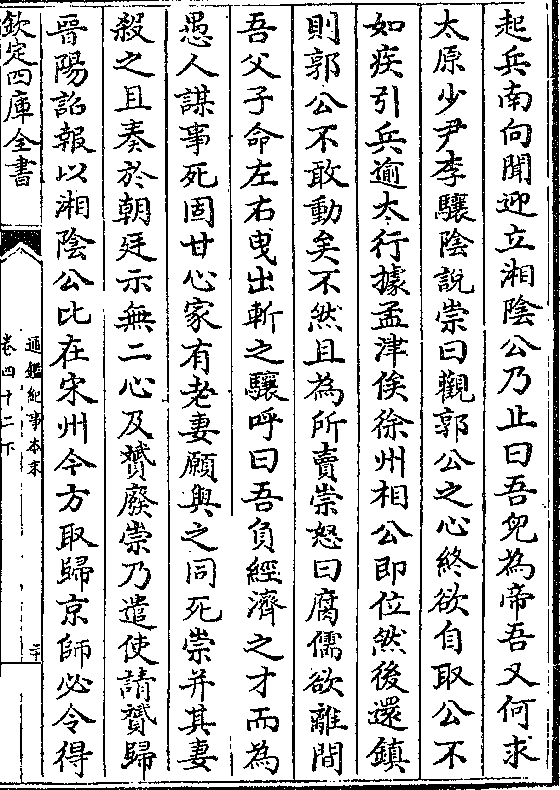 起兵南向聞迎立湘陰公乃止曰吾兒為帝吾又何求
太原少尹李驤陰說崇曰觀郭公之心終欲自取公不
如疾引兵逾太行據孟津俟徐州相公即位然後還鎮
則郭公不敢動矣不然且為所賣崇怒曰腐儒欲離間
吾父子命左右曳出斬之驤呼曰吾負經濟之才而為
愚人謀事死固甘心家有老妻願與之同死崇并其妻
殺之且奏於朝廷示無二心及贇廢崇乃遣使請贇歸
晉陽詔報以湘陰公比在宋州今方取歸京師必令得
欽定四庫全書
通鑑紀事本末
卷四十二下
三十